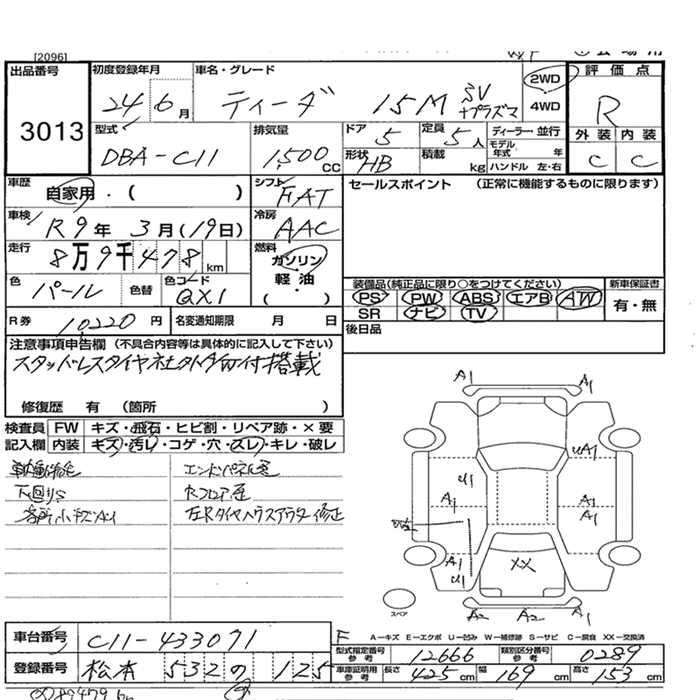 [2096]
出品番号 初度登録年月 車名・グレード 2WD 4WD 評価点
3013 24年6月 ティーダ 15M SV +プラズマ R
型式 排気量 ドア 定員 ディーラー・並行 外装 内装
DBA-C11 1,500 CC 5 5人 モデル年式 年 C C
形状 HB 積載 kg ハンドル 左・右
車歴 自家用・( ) シフト FAT セールスポイント (正常に機能するものに限ります)
車検 R9年 3月(19日) 冷房 AAC
走行 8万9千478km 燃料 ガソリン 軽油 ( )
色 パール 色替 色コード QX1
装備品(純正品に限り○をつけてください) 新車保証書
PS PW ABS エアB AW 有・無
SR ナビ TV
R券 10220円 名変通知期限 月 日 後日品
注意事項申告欄 (不具合内容等は具体的に記入して下さい)
スタッドレスタイヤ 付 搭載
修復歴 有 (箇所 )
検査員 FW キズ・飛石・ヒビ割・リペア跡・×要
記入欄 内装 キズ・汚レ・コゲ・穴・スレ・キレ・破レ
エンドパネル歪
下回りS Rフロア歪
各所小キズAU 左Rタイヤハウスアウター修正
A1 A1
U1 UA1
A1 A1
A1
XX
A1 A1
U1
A2 A2 A1
スペア
F A-キズ E-エクボ U-凹み W-補修跡 S-サビ C-腐食 XX-交換済
車台番号 C11-433071
型式指定番号 参考 12666 類別区分番号 参考 0289
登録番号 松本 532 の 125
車庫証明用 参考 長さ 425cm 幅 169cm 高さ 153cm